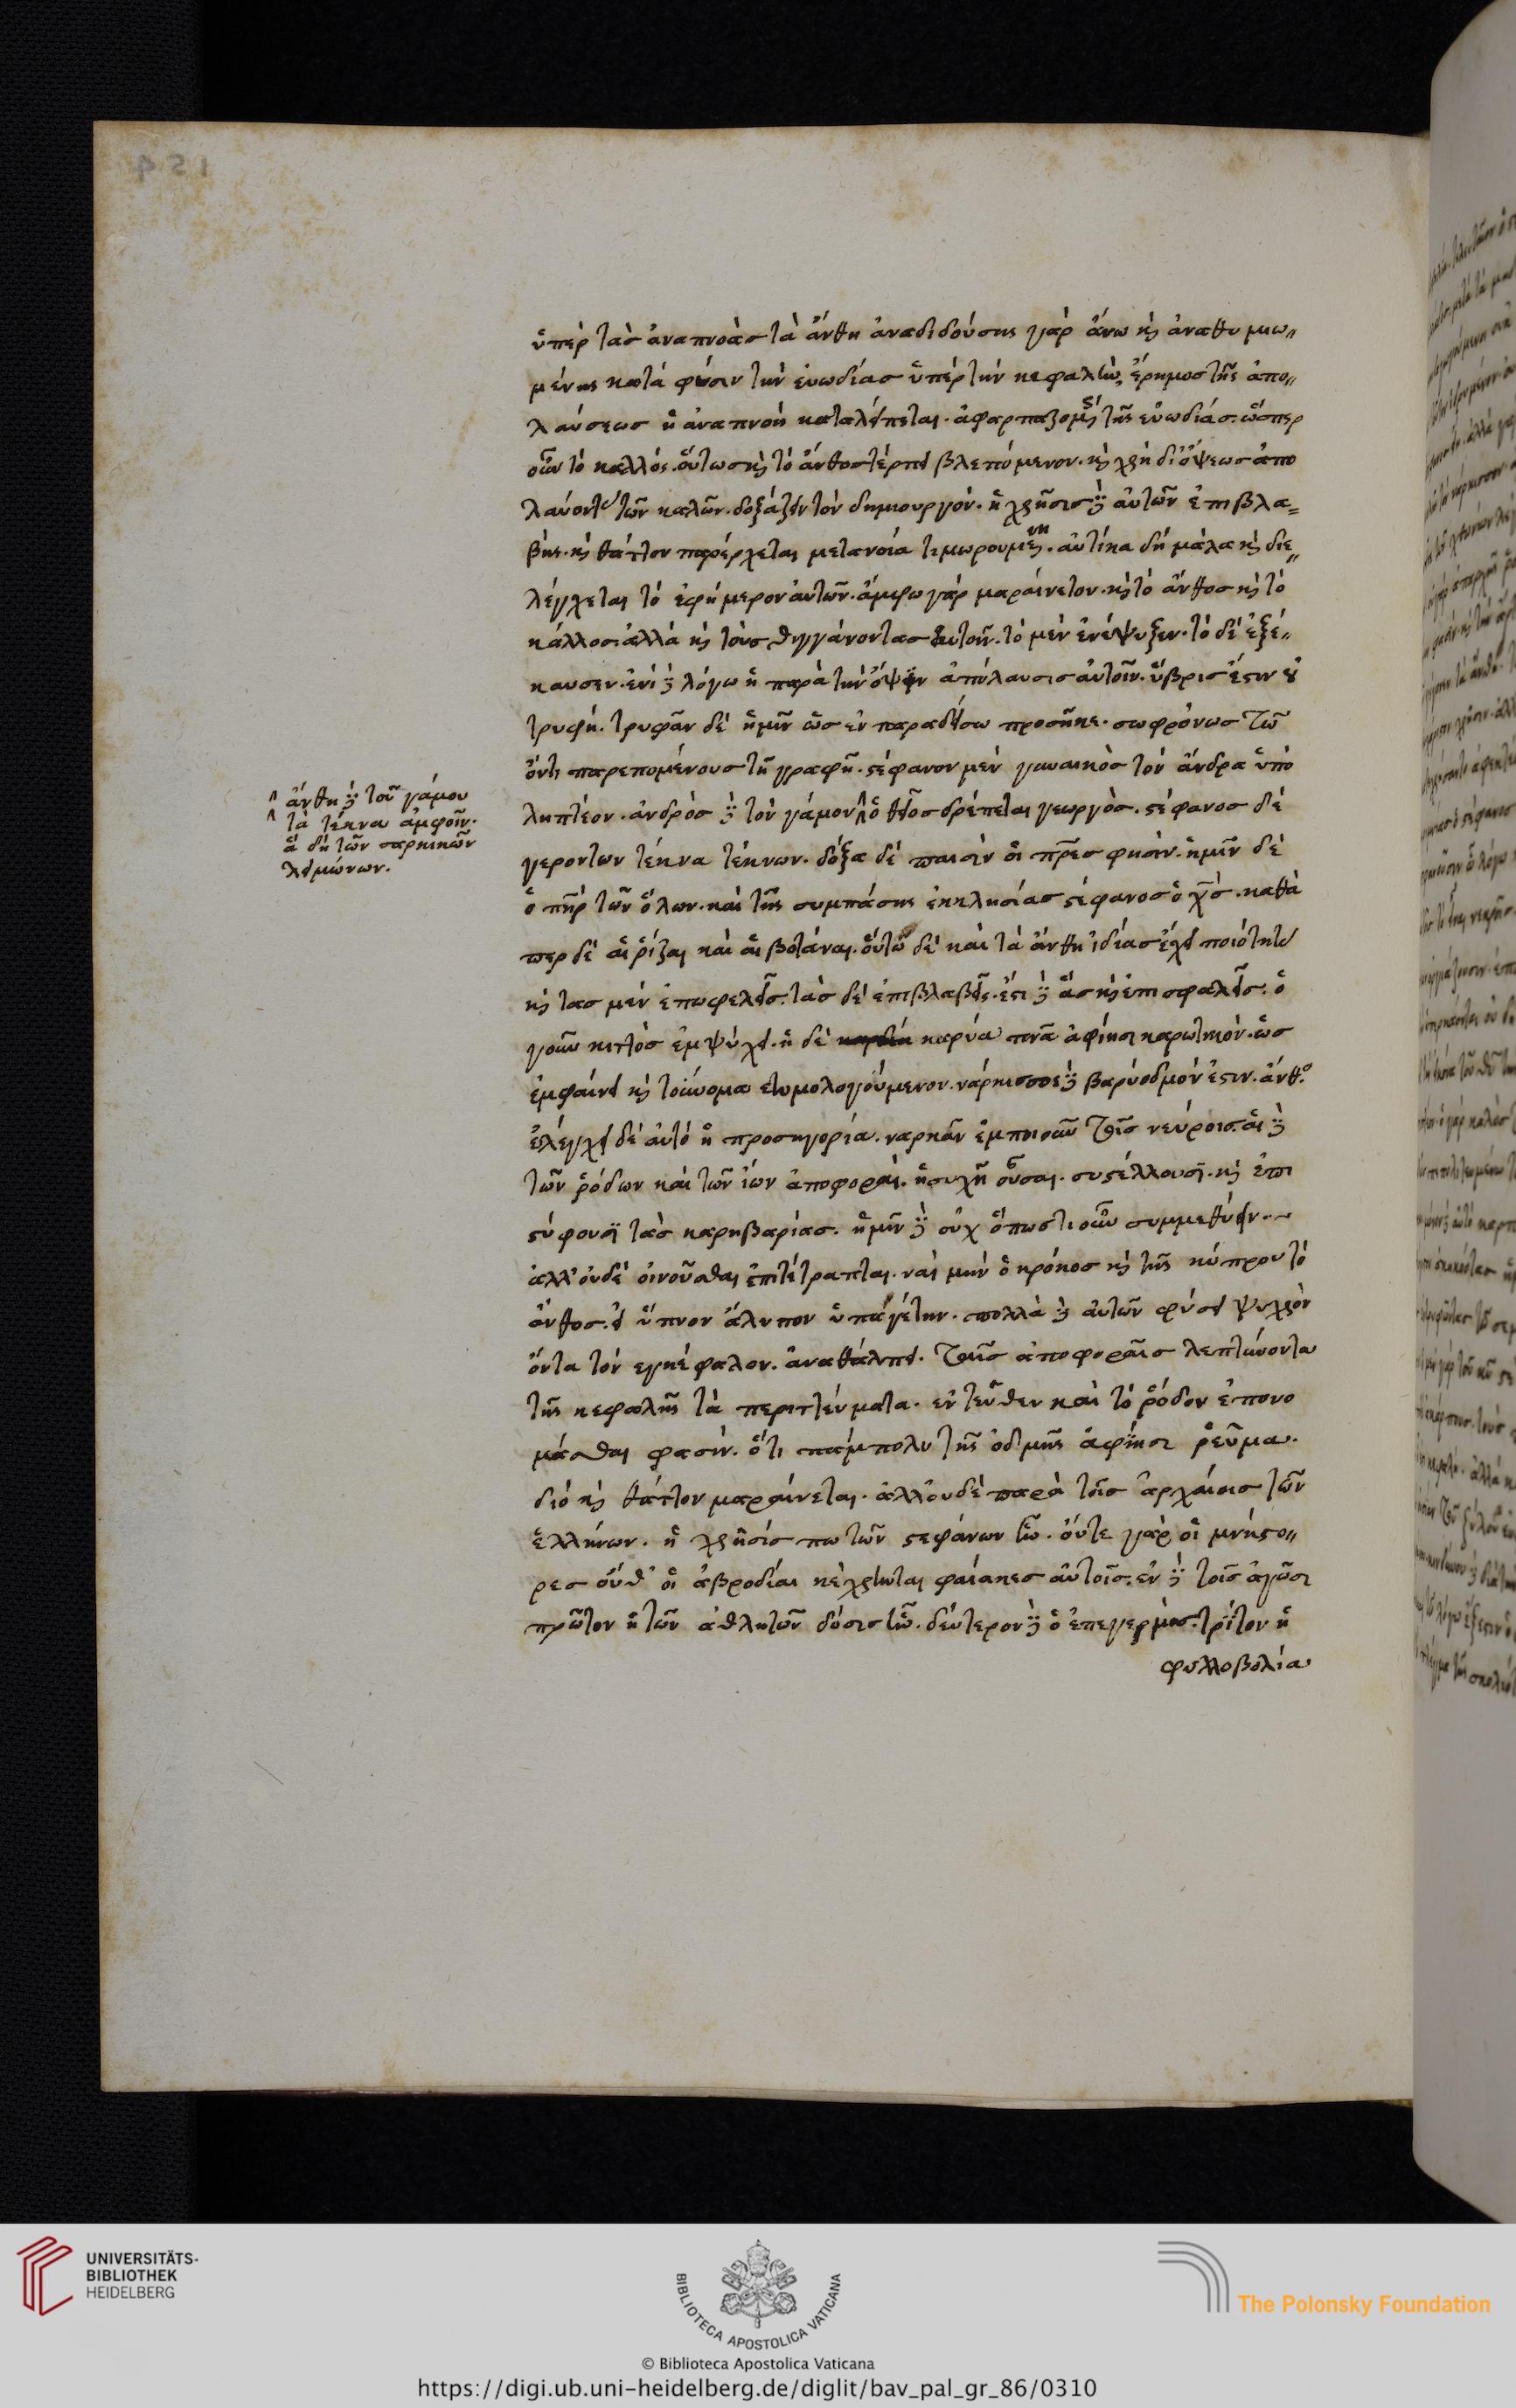 ὑπὲρ τὰσ ἀναπνοὰσ τὰ ἄνθη ἀναδιδούσης γὰρ ἄνω κỳ ἀναθυμιω〃
μένης κατά φύσιν τὴν ἐυωδίασ ὑπέρ τὴν κεφαλὴν, ἔρημοσ τῆς ἀπο〃
λαύσεωσ ἡ ἀναπνοὴ καταλείπεται. ἀφαρπαζομένης τῆς εὐωδιάσ. ὥσπερ
οὖν τὸ κάλλός. οὕτωσ κὶ τὸ ἄνθοσ τέρπει βλεπόμενον. κὶ χρὴ δι' ὄψεωσ ἀπο
λαύοντα τῶν καλῶν. δοξάζειν τὸν δημιουργόν. ἡ χρῆσισ δὲ αὐτῶν ἐπιβλα=
βής. κὶ θάττον παρέρχεται μετανοία τιμωρουμένη. αὐτίκα δὴ μάλα κὶ διε〃
λέγχεται τὸ ἐφήμερον ἀυτῶν. ἄμφω γὰρ μαραίνετον. κὶ τὸ ἄνθοσ κὶ τὸ
κάλλοσ. ἀλλὰ κὶ τοὺσ θιγγάνοντασ αὐτοῖν. τὸ μὲν ἐνέψυξεν. τὸ δὲ ἐξέ〃
καυσεν. ἑνὶ δὲ λόγω ἡ παρὰ τὴν ὄψιν ἀπόλαυσισ αὐτοῖν. ὕβρισ ἐστιν οὐ
τρυφή. τρυφᾶν δὲ ἡμῖν ὡσ ἐν παραδείσω προσῆκε. σωφρόνωσ τῶ
ὄντι παρεπομένουσ τῆ γραφῆ. στέφανον μὲν γυναικὸσ τὸν ἄνδρα ὑπο
ληπτέον. ἀνδρὸσ δὲ τὸν γάμον ^ ὁ θεῖοσ δρέπεται γεωργὸσ. στέφανοσ δὲ
^ ἄνθη δὲ τοῦ γάμου
^ τὰ τέκνα ἀμφοῖν.
ἃ δὴ τῶν σαρκικῶν
λειμώνων.
γεροντων τέκνα τέκνων. δόξα δὲ παισὶν οἱ πρ̅ες φησὶν. ἡμῖν δὲ
ὁ πη̅ρ τῶν ὅλων. καὶ τῆς συμπάσης ἐκκλησίασ στέφανοσ ὁ χ̅σ. καθὰ
περ δὲ αἱ ῥίζαι καὶ αἱ βοτάναι. οὕτω δὲ καὶ τὰ ἄνθη ἰδίασ ἔχει ποιότητα
κὶ τασ μὲν ἐπωφελεῖσ. τὰσ δὲ ἐπιβλαβεῖς. ἔστι δὲ ἃσ κὶ ἐπισφαλεῖσ. ὁ
γοῦν κιττὸσ ἐμψύχει. ἡ δὲ καρύα πνα̅ ἀφίησι καρωτικόν. ὡσ
ἐμφαίνει κὶ τοὔνομα ετυμολογούμενον. νάρκισσοσ δὲ βαρύοδμόν ἐστιν. ἄνθος
ἐλέγχει δὲ αὐτό ἡ προσηγορία. ναρκᾶν ἐμποιοῦν τοῖσ νεύροισ. αἱ δὲ
τῶν ῥόδων καὶ τῶν ἴων ἀποφοραὶ. ἡσυχῆ οὖσαι. συστέλλουσϊ. κὶ ἐπι
στύφουσϊ τὰσ καρηβαρίασ. ἡμῖν δὲ οὐχ ὅπωστιοῦν συμμεθύειν..~
ἀλλ' ὀυδὲ οἰνοῦσθαι ἐπιτέτραπται. ναὶ μὴν ὁ κρόκοσ κὶ τῆς κύπρου τὸ
ἄνθοσ. εἰ ὕπνον ἄλυπον ὑπάγετην. πολλὰ δὲ αὐτῶν φύσει ψυχρὸν
ὄντα τὸν εγκέφαλον. ἀναθάλπει. ταῖσ ἀποφοραῖσ λεπτύνοντα
τῆς κεφαλῆς τὰ περιττεύματα. ἐντεῦθεν καὶ τὸ ῥόδον ἐπονο
μάσθαι φασίν. ὅτι πάμπολυ τῆς ὀδμῆς ἀφίησι ῥεῦμα.
διὸ κὶ θάττον μαραίνεται. ἀλλ' ὀυδὲ παρὰ τοῖσ ἀρχαίοισ τῶν
ἑλλήνων. ἡ χρῆσίσ πω τῶν στεφάνων ἦν. ὄυτε γὰρ οἱ μνήστο〃
ρεσ οὔθ' οἱ ἁβροδίαι κέχρηνται φαίακεσ αὐτοῖσ. ἐν δὲ τοῖσ ἀγῶσι
πρῶτον ἡ τῶν ἀθλητῶν δόσισ ἦν. δεύτερον δὲ ὁ ἐπεγερμὸσ. τρίτον ἡ
φυλλοβολία
UNIVERSITÄTS-
BIBLIOTHEK
HEIDELBERG
BIBLIOTECA APOSTOLICA VATICANA
The Polonsky Foundation
© Biblioteca Apostolica Vaticana
https://digi.ub.uni-heidelberg.de/diglit/bav_pal_gr_86/0310